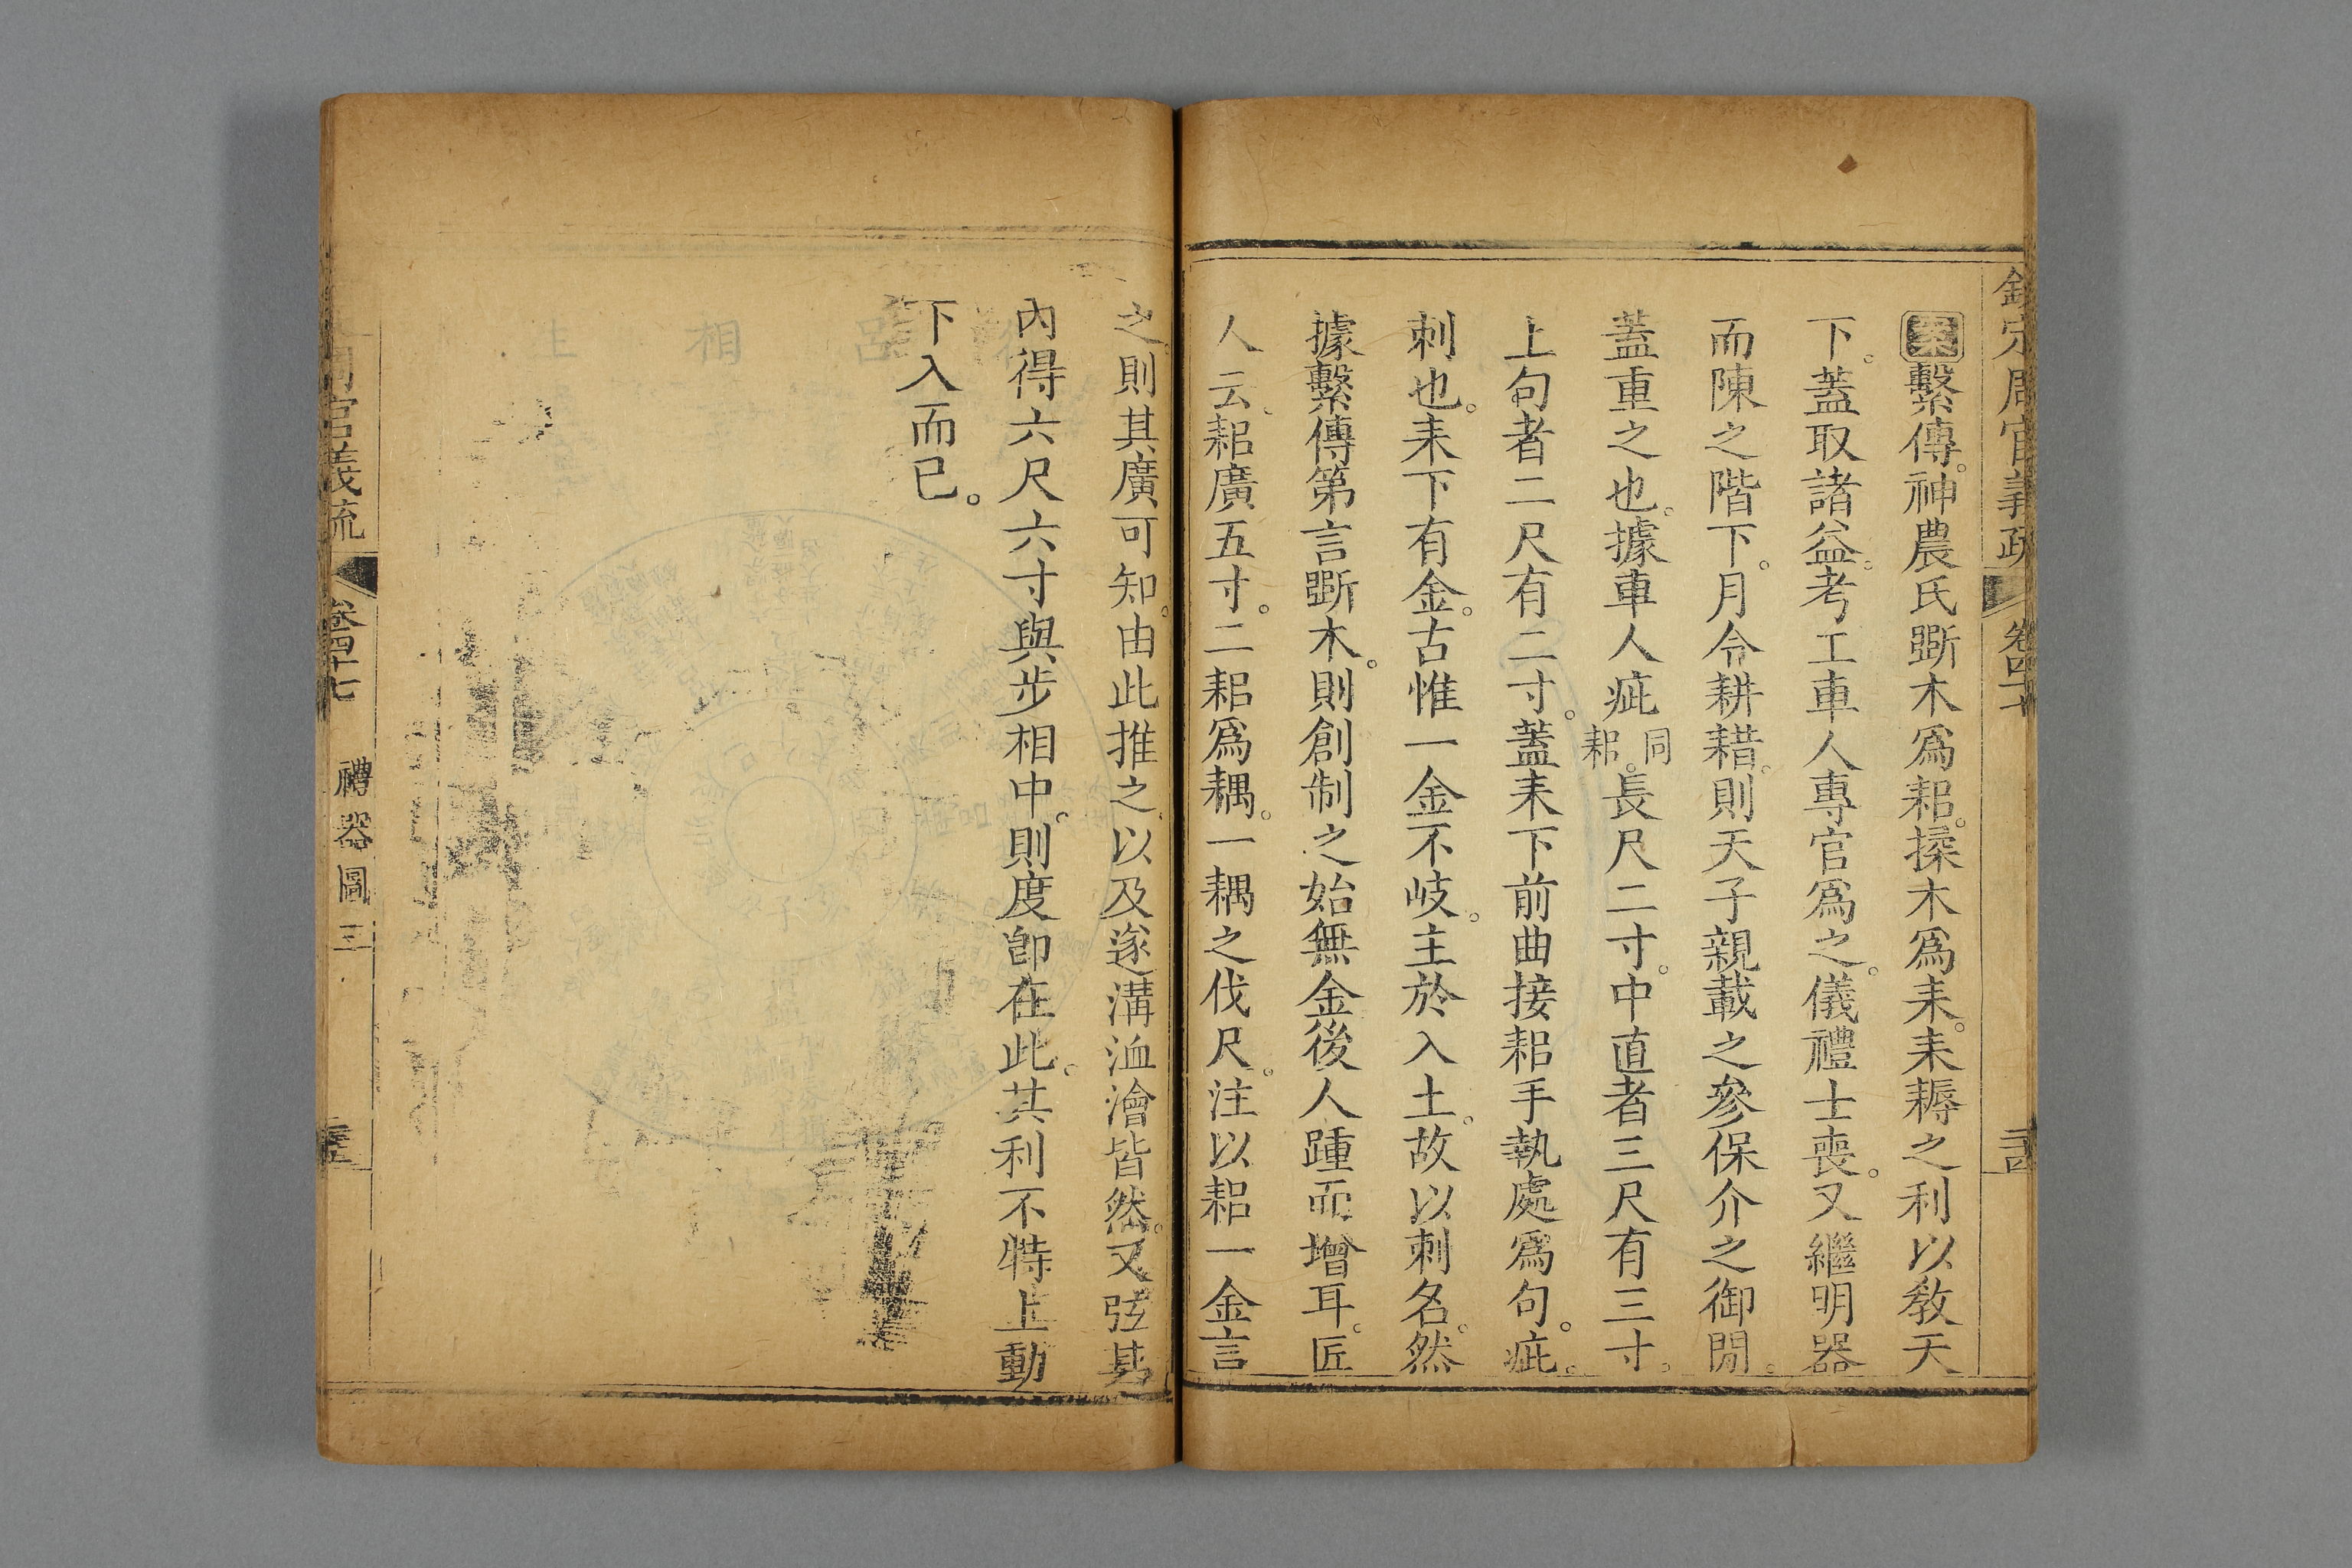 欽定周官義疏 卷四十七
案繫傳。神農氏斲木爲耜。揉木爲耒。耒耨之利以敎天
下。蓋取諸益。考工車人專官爲之。儀禮士喪。又繼明器
而陳之階下。月令耕耤。則天子親載之參保介之御閒。
蓋重之也。據車人疵同耜。長尺二寸。中直者三尺有三寸。
上句者二尺有二寸。蓋耒下前曲接耜手執處爲句。疵。
刺也。耒下有金。古惟一金不岐。主於入土。故以刺名。然
據繫傳第言斲木。則創制之始無金後人踵而增耳。匠
人云、耜廣五寸。二耜爲耦。一耦之伐尺。注以耜一金言
之則其廣可知。由此推之、以及遂溝洫澮皆然。又弦其
內得六尺六寸與步相中。則度卽在此。其利不特上動
下入而已。
周官義疏 卷四十七 禮器圖三